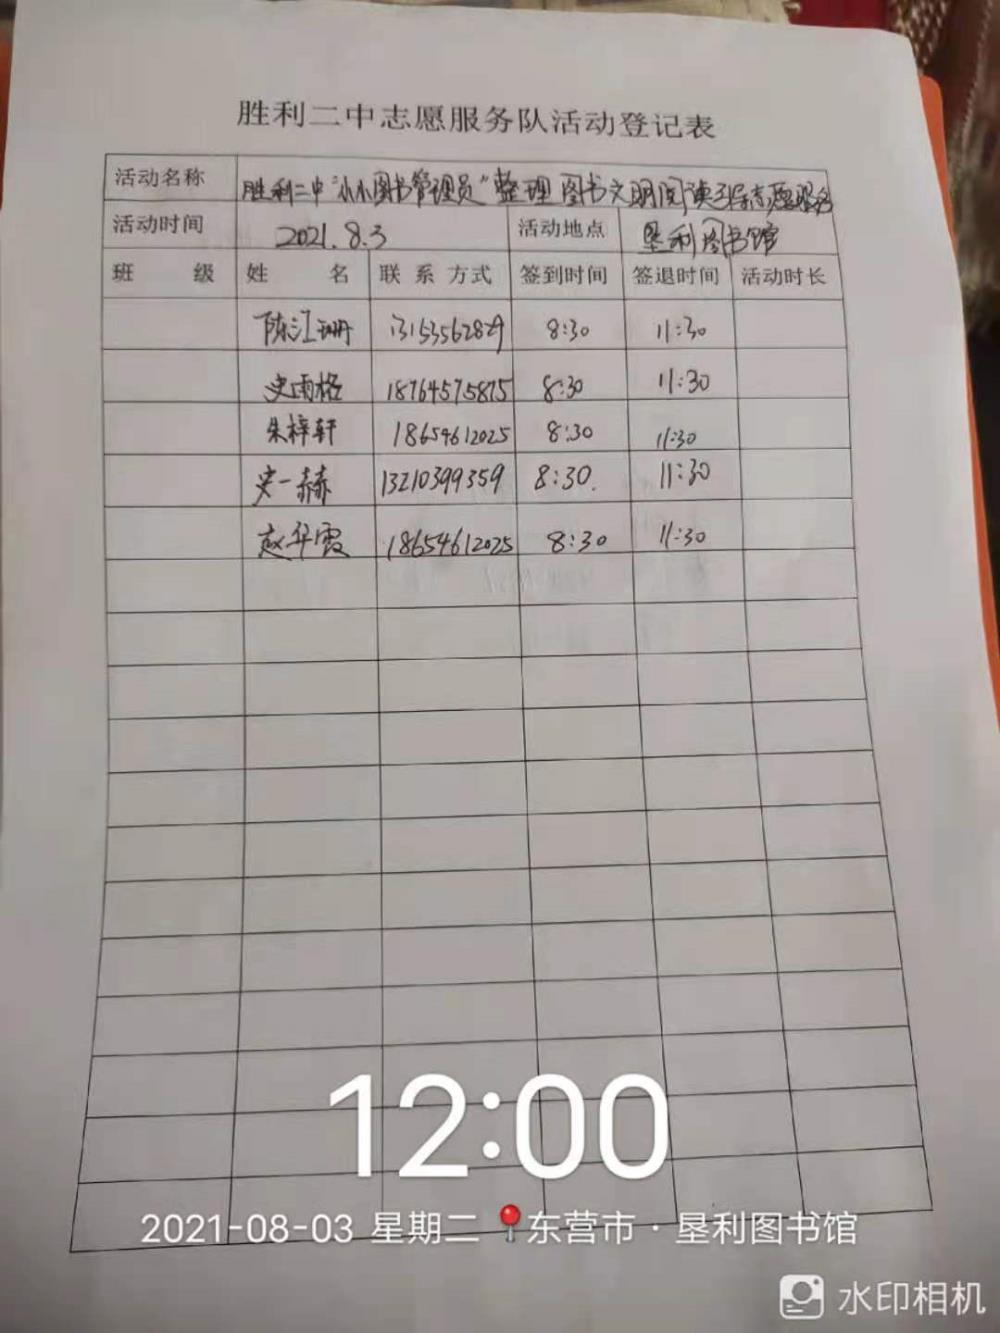 胜利二中志愿服务队活动登记表
活动名称 胜利二中"小小图书管理员"整理图书文明阅读引导志愿服务
活动时间 2021.8.3 活动地点 垦利图书馆
班 级 姓 名 联系方式 签到时间 签退时间 活动时长
陈江珊 13153562829 8:30 11:30
史雨格 18764575875 8:30 11:30
朱梓轩 18654612025 8:30 11:30
史一赫 13210399359 8:30. 11:30
赵华霞 18654612025 8:30 11:30
12:00
2021-08-03 星期二 东营市·垦利图书馆
水印相机